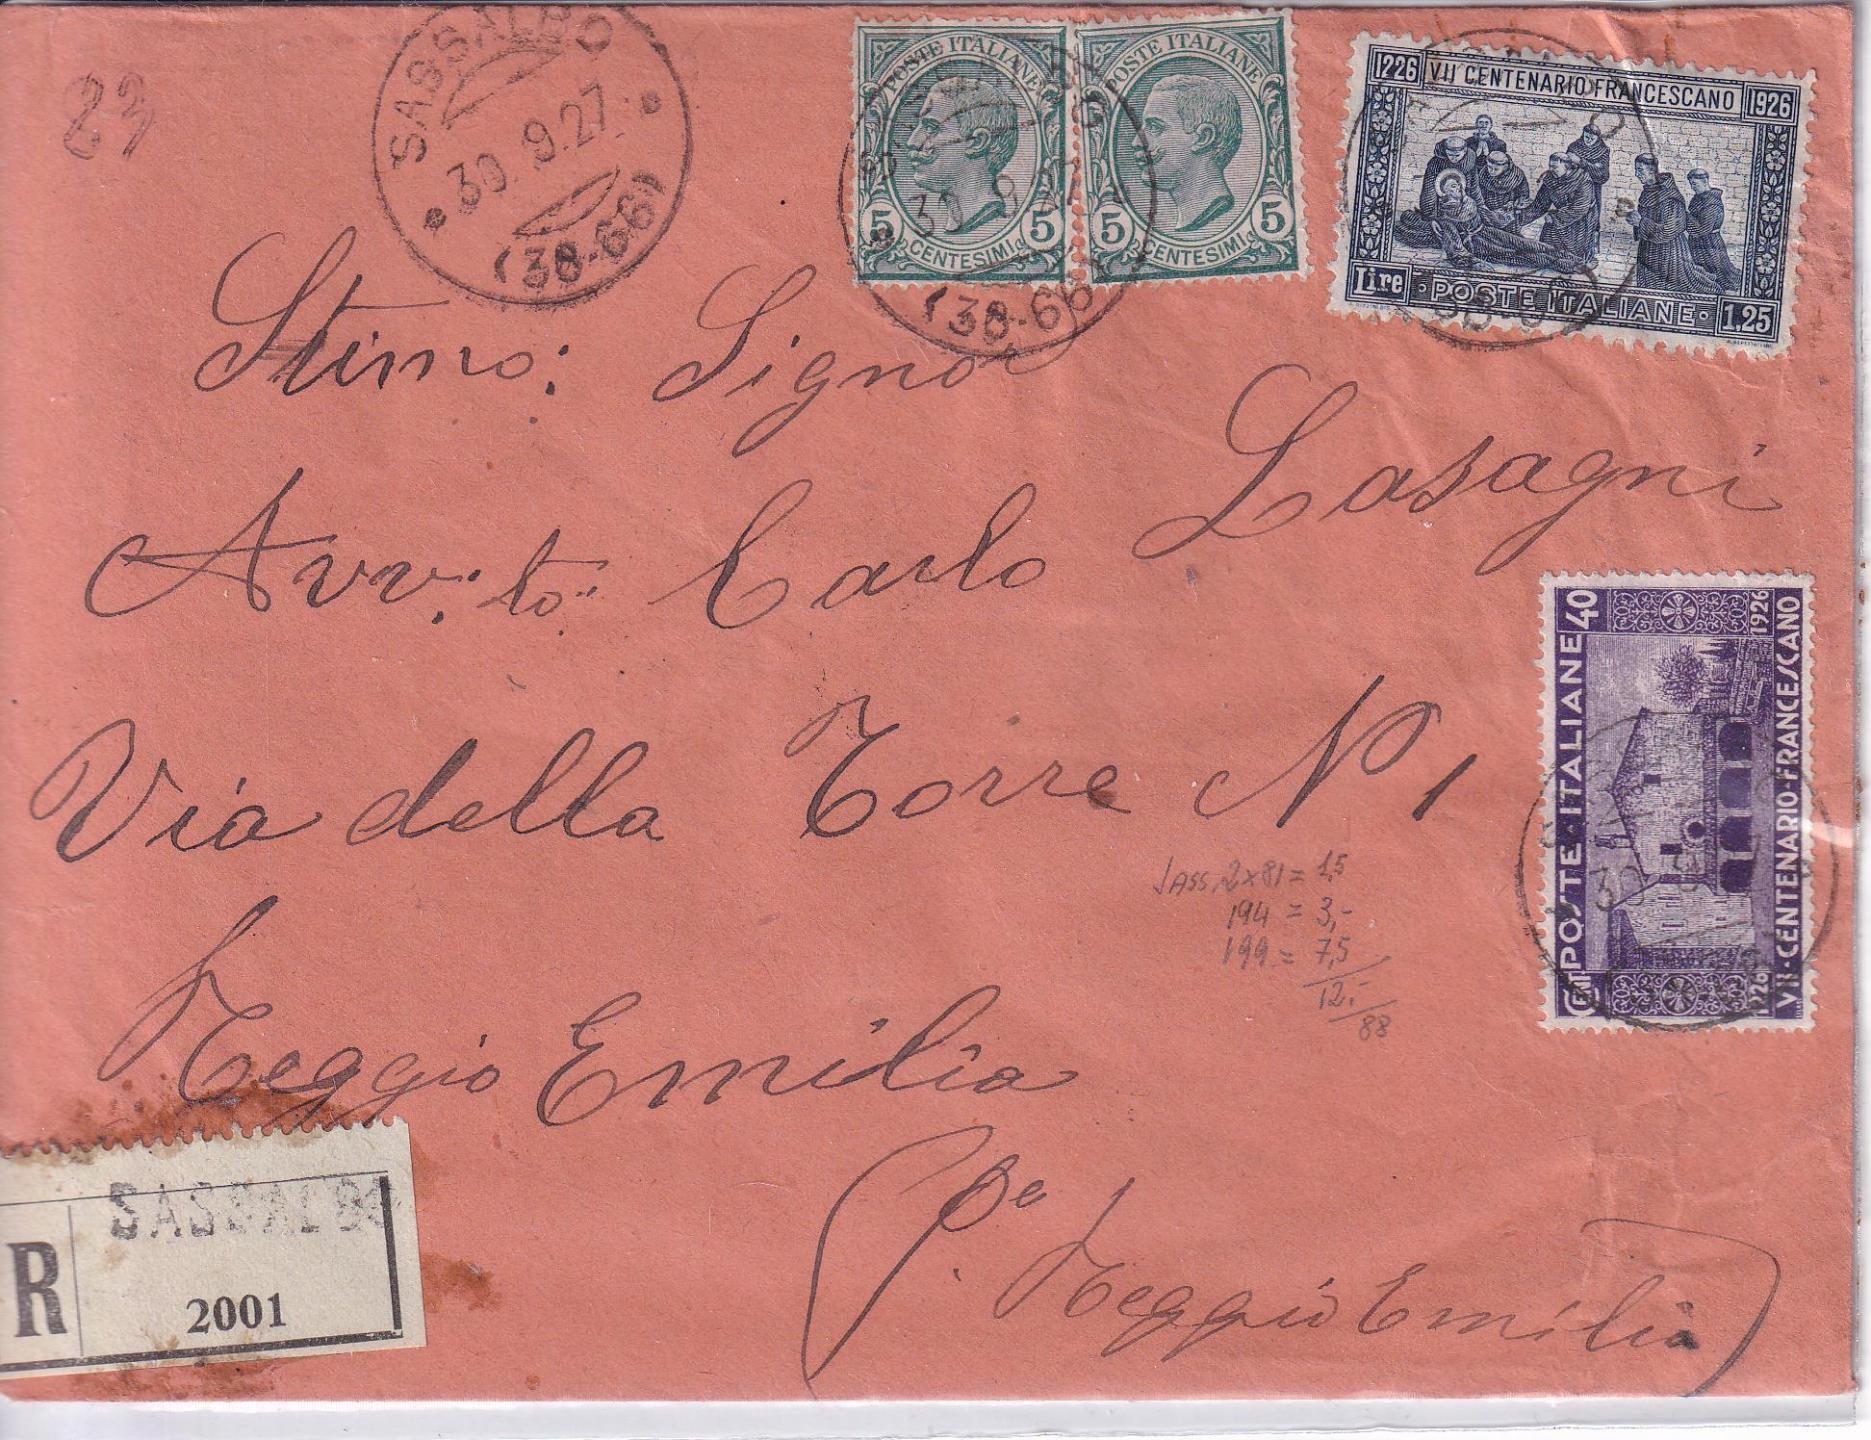 23
SASSALBO
30. 9. 27
(38-66)
POSTE ITALIANE
5 CENTESIMI 5
POSTE ITALIANE
5 CENTESIMI 5
30 9 27
(38-66)
1226 VII CENTENARIO FRANCESCANO 1926
Lire POSTE ITALIANE 1,25
Stimo: Signor
Avv:to: Carlo Lasagni
Via della Torre No 1
Reggio Emilia
(Pe. Reggio Emilia)
CENT POSTE·ITALIANE 40
1226 1926
VII·CENTENARIO·FRANCESCANO
30 9
SASS. 2x81 = 1,5
194 = 3,-
199 = 7,5
12.-
88
SASSALBO
R
2001